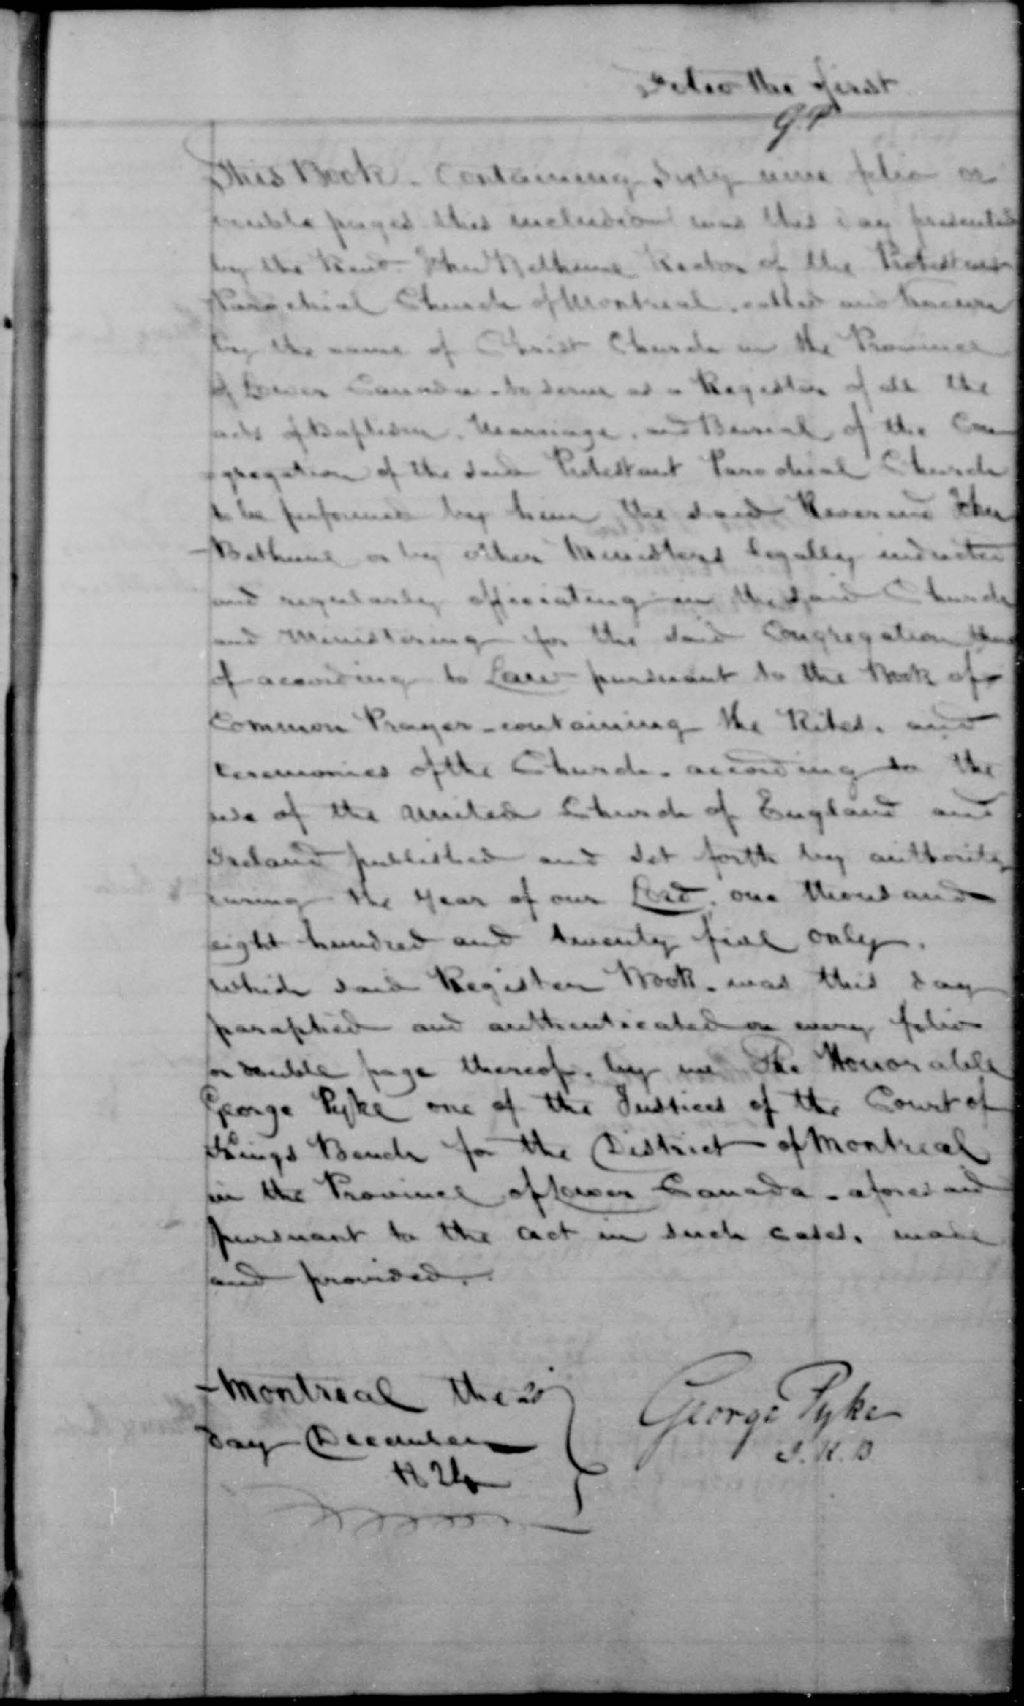 Folio the first
G.P
This Book. Containing Sixty nine folio or
double pages this inclusive was this day presented
by the Revd. John Bethune Rector of the Protestant
Parochial Church of Montreal. called and known
by the name of Christ Church in the Province
of Lower Canada. to serve as a Register of all the
acts of Baptism. Marriage. and Burial of the Con
gregation of the said Protestant Parochial Church
to be performed by him the said Reverend John
Bethune or by other Ministers legally inducted
and regularly officiating in the said Church
and Ministering for the said Congregation there
of according to Law pursuant to the Book of
Common Prayer - containing the Rites. and
Ceremonies of the Church. according to the
use of the United Church of England and
Ireland published and set forth by authority
during the year of our Lord. one thousand
eight hundred and twenty five only.
Which said Register Book. was this day
paraphed and authenticated on every folio
or double page thereof. by me The Honorable
George Pyke one of the Justices of the Court of
Kings Bench for the District of Montreal
in the Province of Lower Canada - aforesaid
pursuant to the act in such cases. made
and provided.
Montreal the 20
day December
1824
George Pyke
J.K.B